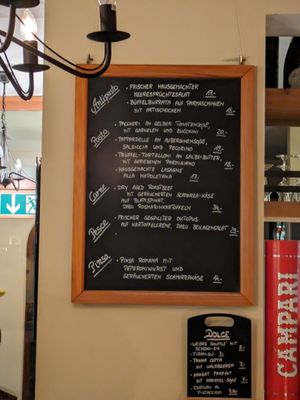 Antipasto
- Frischer hausgemachter
Meeresfrüchtesalat 17.-
- Büffelburrata auf Parmaschinken
mit Artischocken 15.-
Pasta
- Paccheri an gelber Tomatensoße,
mit Garnelen und Zucchini 20.-
- Pappardelle an Auberginensoße,
Salsiccia und Pecorino
- Trüffel-Tortelloni an Salbei-Butter,
mit geriebenem Parmesano 18.-
- Hausgemachte Lasagne
alla Napoletana 17.-
Carne
- Dry Aged Roastbeef
mit geräucherten Scamorza-Käse
auf Blattspinat,
dazu Rosmarinkartoffeln 34.-
Pesce
- Frischer gegrillter Oktopus
auf Kartoffelcreme, dazu Beilagensalat 29.-
Pizza
- Pinsa Romana mit
Peperoniwurst und
geräucherten Scamorzakäse 14.-
Dolce
- Weißes Soufflé mit
- Tiramisu
- Panna Cotta
mit Waldbeeren
- Nougat Parfait
mit Karamel-Soße
- Tartufo al
Pistacchio
CAMPARI